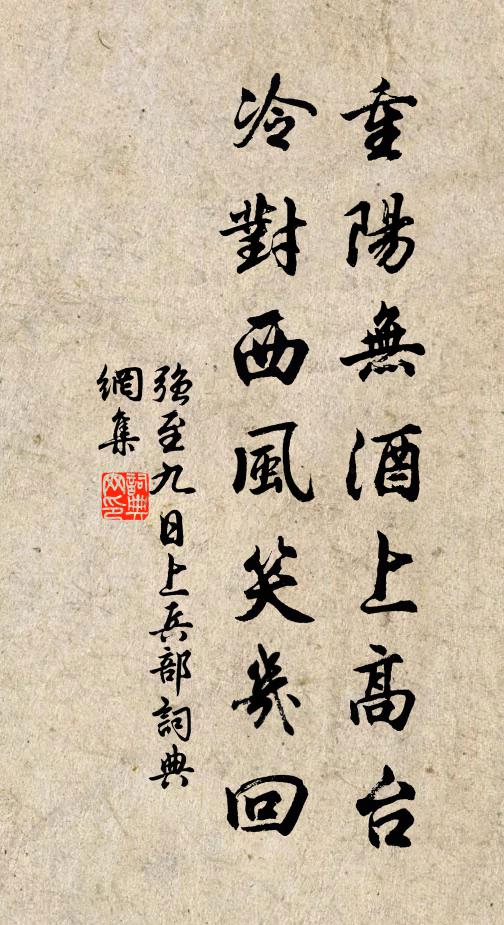 重陽無酒上高台
冷對西風笑幾回
強至九日上兵部詞典
網集
詞典
网印